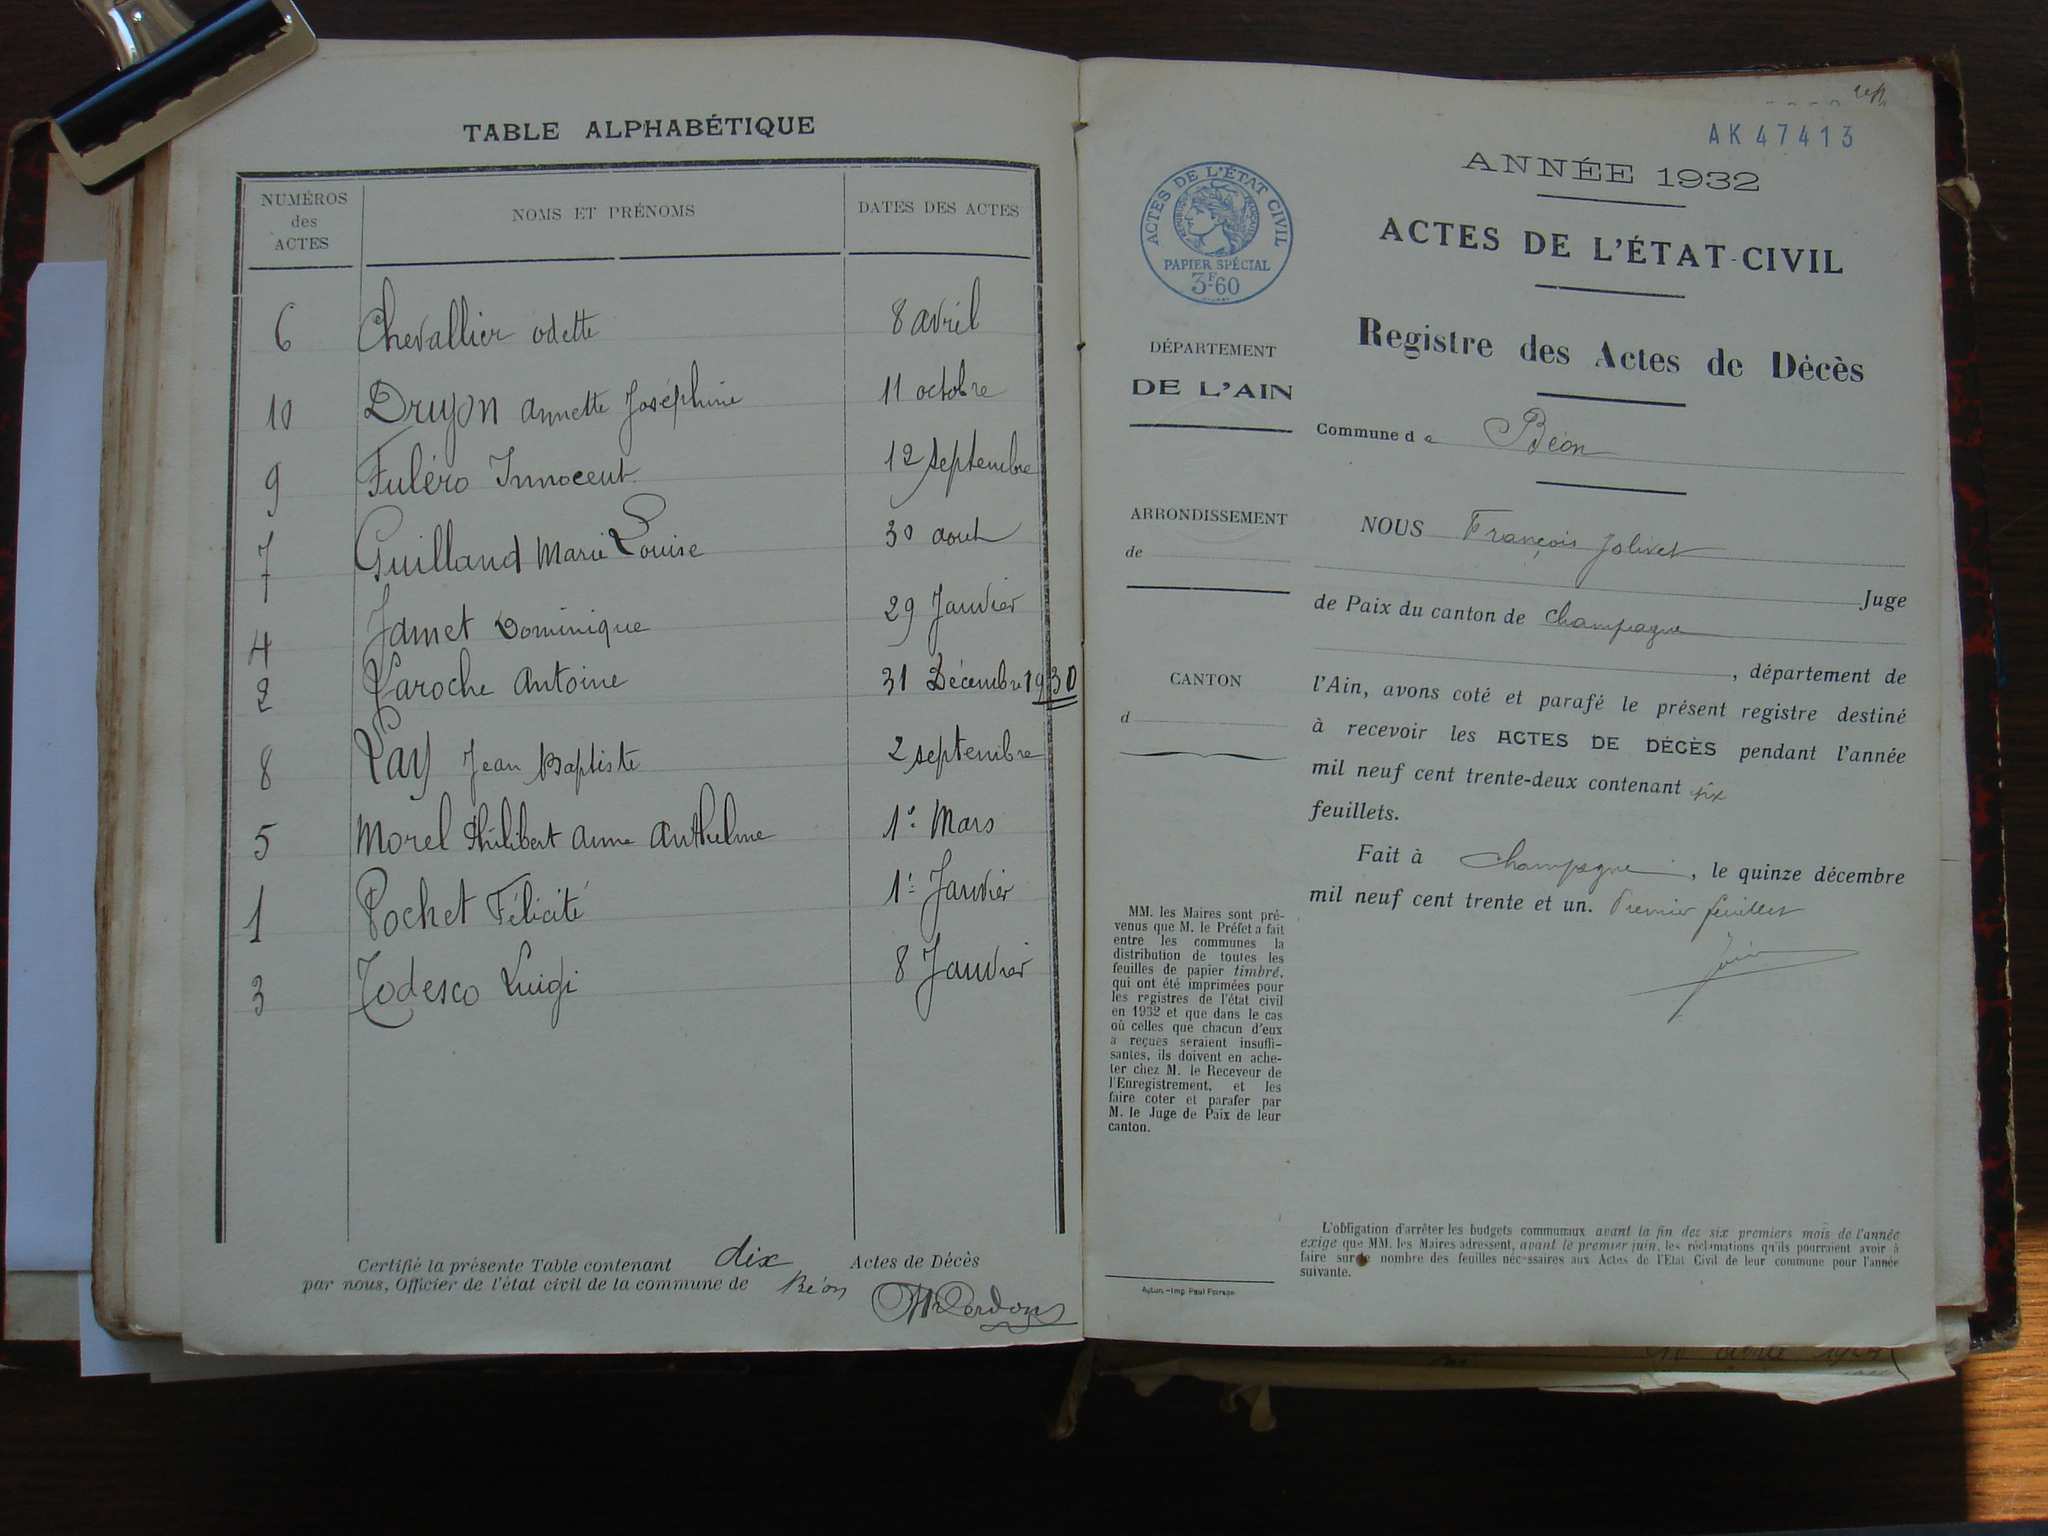 TABLE ALPHABÉTIQUE
NUMÉROS des ACTES
NOMS ET PRÉNOMS
DATES DES ACTES
6 Chevallier Odette 8 avril
10 Druyon Annette Joséphine 11 octobre
9 Fuléro Innocent 12 septembre
7 Guilland Marie Louise 30 aout
4 Jamet Dominique 29 Janvier
2 Laroche Antoine 31 Décembre 1930
8 Lay Jean Baptiste 2 septembre
5 Morel Philibert Anne Anthelme 1er Mars
1 Pochet Félicité 1er Janvier
3 Todesco Luigi 8 Janvier
Certifié la présente Table contenant dix Actes de Décès
par nous, Officier de l'état civil de la commune de Béon
AK 47413
ACTES DE L'ÉTAT CIVIL
RÉPUBLIQUE FRANÇAISE
PAPIER SPÉCIAL
3F.60
ANNÉE 1932
ACTES DE L'ÉTAT-CIVIL
Registre des Actes de Décès
DÉPARTEMENT
DE L'AIN
Commune de Béon
ARRONDISSEMENT
de
NOUS François Jolivet
Juge
de Paix du canton de Champagne
, département de
CANTON
d
l'Ain, avons coté et parafé le présent registre destiné
à recevoir les ACTES DE DÉCÈS pendant l'année
mil neuf cent trente-deux contenant six
feuillets.
Fait à Champagne, le quinze décembre
mil neuf cent trente et un. Premier feuillet
MM. les Maires sont pré-
venus que M. le Préfet a fait
entre les communes la
distribution de toutes les
feuilles de papier timbré,
qui ont été imprimées pour
les registres de l'état civil
en 1932 et que dans le cas
où celles que chacun d'eux
a reçues seraient insuffi-
santes, ils doivent en ache-
ter chez M. le Receveur de
l'Enregistrement, et les
faire coter et parafer par
M. le Juge de Paix de leur
canton.
L'obligation d'arrêter les budgets communaux avant la fin des six premiers mois de l'année
exige que MM. les Maires adressent, avant le premier juin, les réclamations qu'ils pourraient avoir à
faire sur le nombre des feuilles nécessaires aux Actes de l'Etat Civil de leur commune pour l'année
suivante.